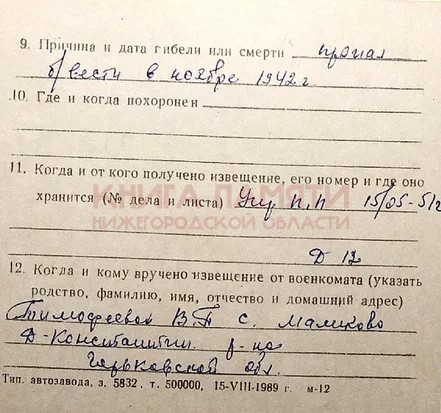 9. Причина и дата гибели или смерти пропал
б/вести в ноябре 1942 г
10. Где и когда похоронен
11. Когда и от кого получено извещение, его номер и где оно
хранится (№ дела и листа) Упр п.п 15/05-51г
КНИГА ПАМЯТИ
НИЖЕГОРОДСКОЙ ОБЛАСТИ
Д 12
12. Когда и кому вручено извещение от военкомата (указать
родство, фамилию, имя, отчество и домашний адрес)
Тимофеевой В.П с. Маликово
Д-Константин. р-на
Горьковской обл.
Тип. автозавода, з. 5832, т. 500000, 15-VIII-1989 г. м-12